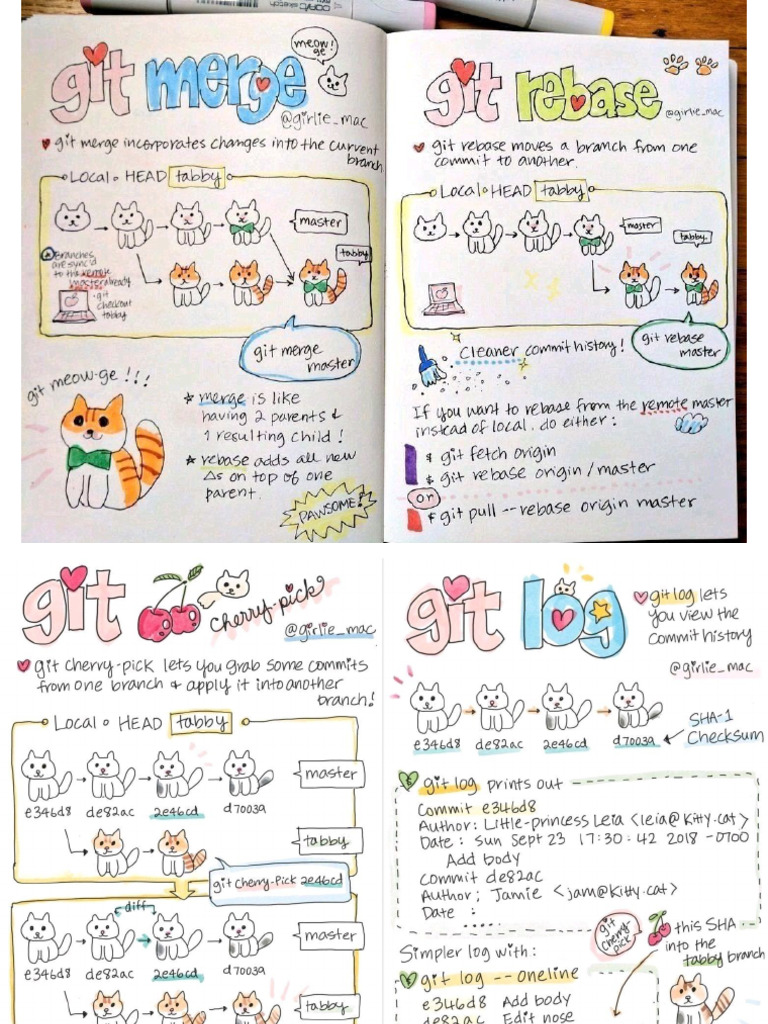 meow!
ge
git merge
@girlie_mac
git merge incorporates changes into the current
branch.
Local HEAD tabby
master
tabby
Branches
are sync'd
to the remote
master already
git
checkout
tabby
git merge
master
git meow-ge!!!
merge is like
having 2 parents &
1 resulting child!
rebase adds all new
Δs on top of one
parent.
PAWSOME!
git rebase
@girlie_mac
git rebase moves a branch from one
commit to another.
Local HEAD tabby
master
tabby
git rebase
master
Cleaner commit history!
If you want to rebase from the remote master
instead of local, do either:
$ git fetch origin
$ git rebase origin/master
or
$ git pull --rebase origin master
git cherry-pick
@girlie_mac
git cherry-pick lets you grab some commits
from one branch & apply it into another
branch!
Local HEAD tabby
master
e346d8 de82ac 2e46cd d70039
tabby
git cherry-pick 2e46cd
diff
master
e346d8 de82ac 2e46cd d70039
tabby
git log
git log lets
you view the
commit history
@girlie_mac
e346d8 de82ac 2e46cd d70039
SHA-1
Checksum
$ git log prints out
Commit e346d8
Author: Little-princess Leia <leia@kitty.cat>
Date: Sun Sept 23 17:30:42 2018 -0700
Add body
Commit de82ac
Author; Jamie <jam@kitty.cat>
Date :
.....
git
cherry-
pick
this SHA
into the
tabby branch
Simpler log with:
$ git log --oneline
e346d8 Add body
de82ac Edit nose